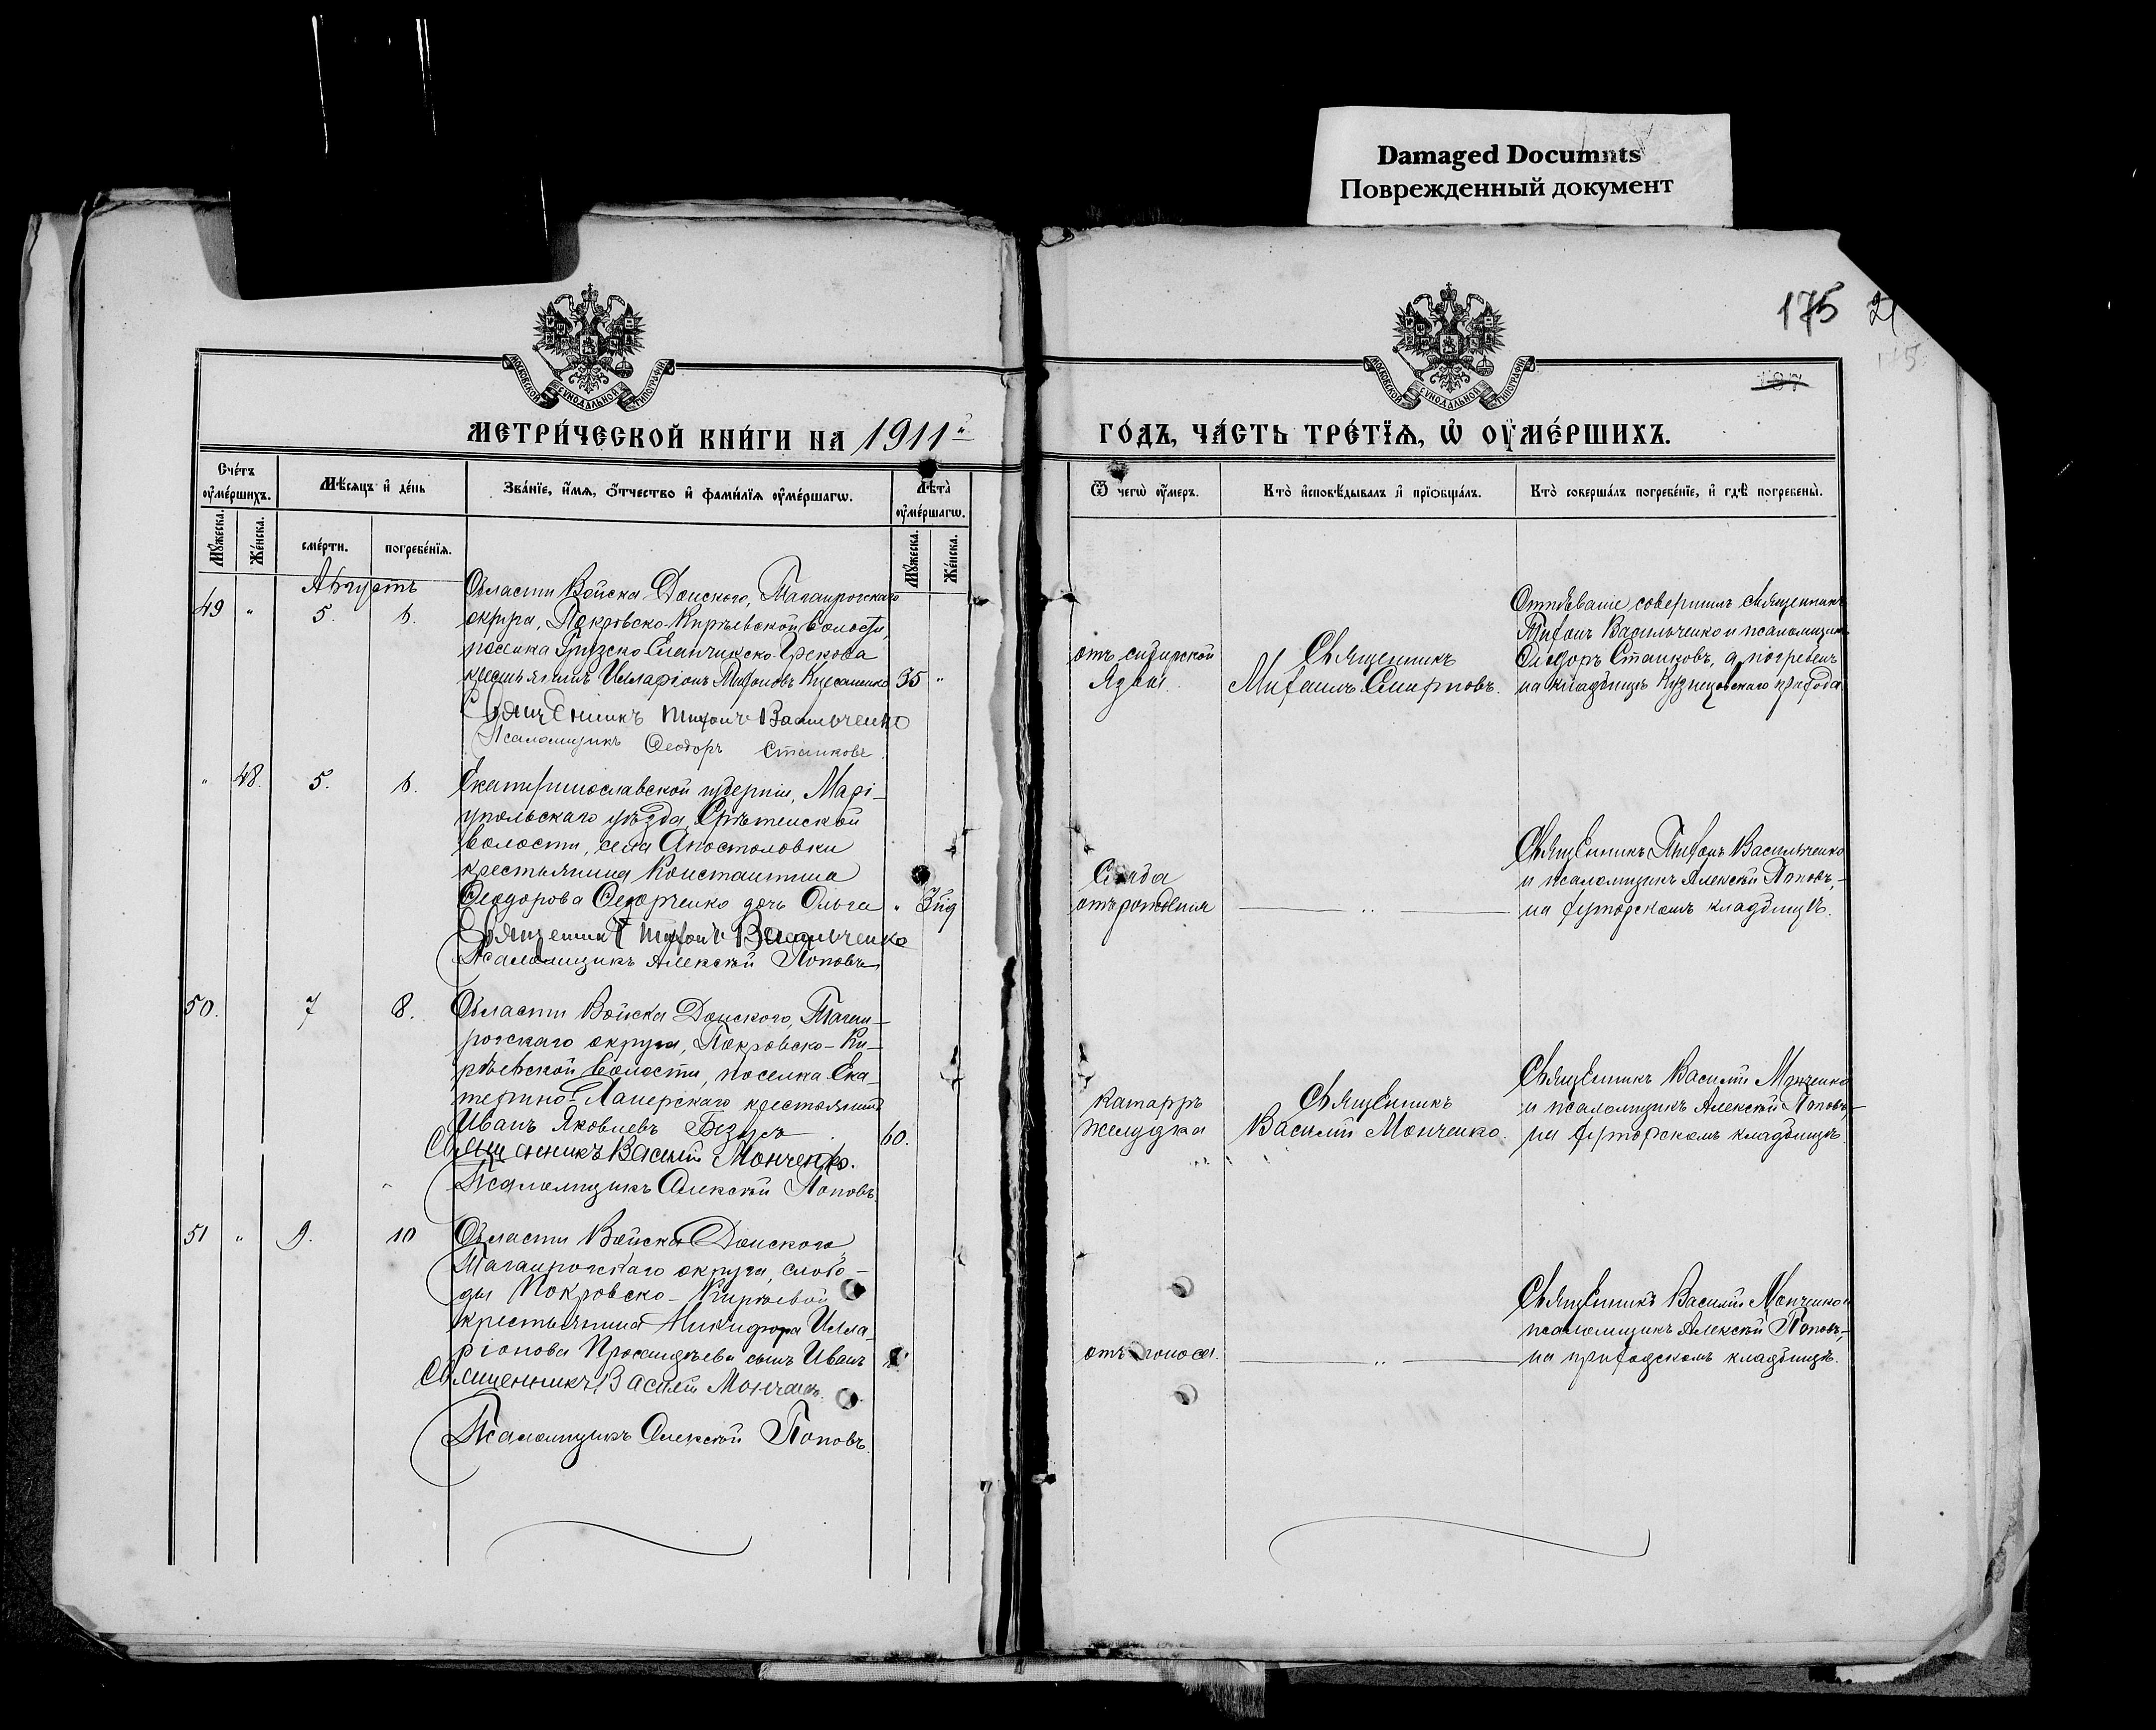 Damaged Documnts
Поврежденный документ
175 21
МОСКОВСКОЙ СѴНОДАЛЬНОЙ ТИПОГРАФІИ
МОСКОВСКОЙ СѴНОДАЛЬНОЙ ТИПОГРАФІИ
МЕТРИ́ЧЕСКОЙ КНИ́ГИ НА 1911й
ГО́ДЪ, ЧА́СТЬ ТРЕ́ТЇѦ, Ѡ҆ ОУ҆МЕ́РШИХЪ.
Сче́тъ оу҆ме́ршихъ.
Мꙋ́жеска.
Же́нска.
Мѣ́сяцъ и҆ де́нь
сме́рти.
погребе́нїѧ.
Зва́нїе, и҆́мѧ, ѻ҆́тчество и҆ фами́лїѧ оу҆ме́ршагѡ.
Лѣ́та оу҆ме́ршагѡ.
Мꙋ́жеска.
Же́нска.
Ѿ чегѡ̀ оу҆́меръ.
Кто̀ и҆сповѣ́дывалъ и҆ прїѡбща́лъ.
Кто̀ соверша́лъ погребе́нїе, и҆ гдѣ̀ погребены̀.
Августъ
49 " 5. 6.
Области Войска Донского, Таганрогскаго
округа, Покровско-Кирѣевской волости,
поселка Грузско-Еланчикско-Грекова
крестьянинъ Илларіонъ Тихоновъ
35 "
Священникъ Тихонъ Васильченко
Псаломщикъ Ѳеодоръ Станковъ
отъ сибирской
язвы.
Священникъ
Михаилъ Смирновъ.
Отпѣваніе совершилъ священникъ
Тихонъ Васильченко и псаломщикъ
Ѳеодоръ Станковъ, а погребенъ
на кладбищѣ Кузнецовскаго прихода
" 48. 5. 6.
Екатеринославской губерніи, Марі-
упольскаго уѣзда, Срѣтенской
волости, села Апостоловки
крестьянина Константина
Ѳеодорова Ѳедорченко дочь Ольга
" 3
Священникъ Тихонъ Васильченко
Псаломщикъ Алексѣй Поповъ
Слаба
отъ рожденія
— " —
Священникъ Тихонъ Васильченко
и псаломщикъ Алексѣй Поповъ,-
на хуторскомъ кладбищѣ.
50. 7 8.
Области Войска Донского, Таган-
рогскаго округа, Покровско-Ки-
рѣевской волости, поселка Ека-
терино-Лаперскаго крестьянинъ
Иванъ Яковлевъ
60.
Священникъ Василій Монченко.
Псаломщикъ Алексѣй Поповъ.
Катарръ
желудка
Священникъ
Василій Монченко.
Священникъ Василій Монченко
и псаломщикъ Алексѣй Поповъ-
на хуторскомъ кладбищѣ.
51 " 9. 10
Области Войска Донского,
Таганрогскаго округа, слобо-
ды Покровско-Кирѣевой
крестьянина Никифора Илла-
ріонова сынъ Иванъ
Священникъ Василій Монченко.
Псаломщикъ Алексѣй Поповъ.
отъ поноса.
— " —
Священникъ Василій Монченко и
псаломщикъ Алексѣй Поповъ,-
на приходскомъ кладбищѣ.